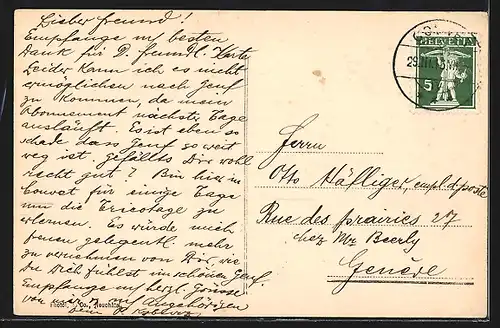 Lieber Freund!
Empfange m. besten
Dank für D. freundl. Karte
Leider kann ich es nicht
ermöglichen nach Genf
zu kommen, da mein
Abonnement nächste Tage
ausläuft. Es ist eben so
schade dass Genf so weit
weg ist. Gefällts Dir wohl
recht gut? Bin hier in
Couvet für einige Tage
um die Tricotage zu
erlernen. Es würde mich
freuen gelegentl. mehr
zu vernehmen von Dir, wie
Du Dich fühlst im schönen Genf.
Empfange m. herzl. Grüsse
von m. Angehörigen
HELVETIA
5
Herrn
Otto Hälliger, empl. d. poste
Rue des prairies 27
chez Mr Beerly
Genève